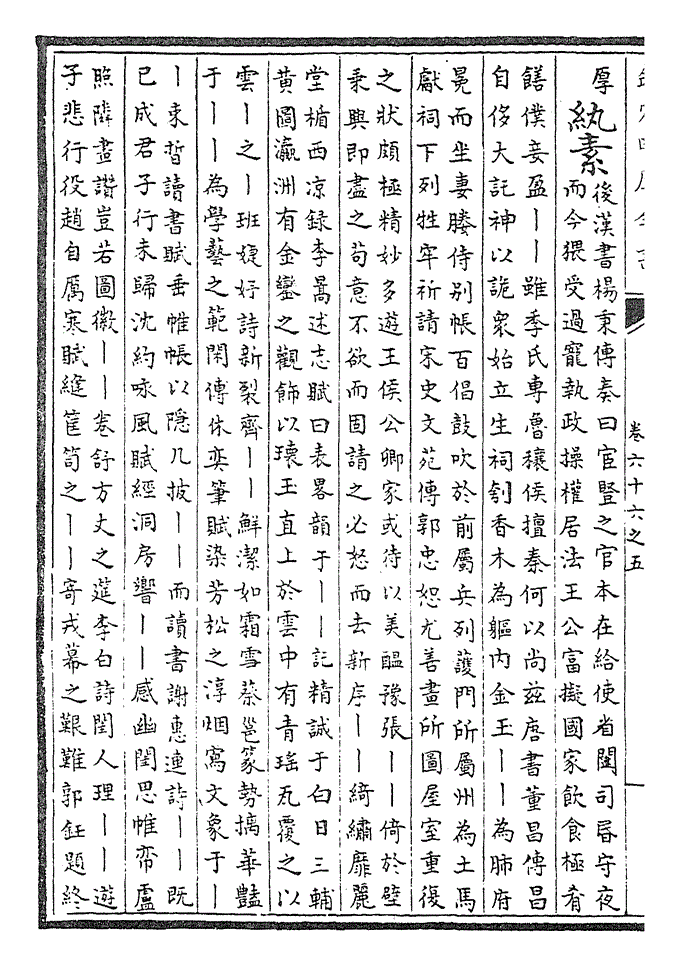 卷六十六之五
厚紈素後漢書楊秉傳奏曰宦豎之官本在給使省闥司昬守夜
而今猥受過寵執政操權居法王公富擬國家飲食極肴
饍僕妾盈丨丨雖季氏專魯穰侯擅秦何以尚兹唐書董昌傳昌
自侈大託神以詭衆始立生祠刳香木為軀内金玉丨丨為肺府
冕而坐妻媵侍别帳百倡鼓吹於前屬兵列䕶門所屬州為土馬
獻祠下列牲牢祈請宋史文苑傳郭忠恕尤善畫所圖屋室重復
之狀頗極精妙多遊王侯公卿家或待以美醖豫張丨丨倚於壁
乗興即畫之苟意不欲而固請之必怒而去新序丨丨綺繡靡麗
堂楯西凉録李暠述志賦曰表畧韻于丨丨記精誠于白日三輔
黄圖瀛洲有金鑾之觀飾以瓌玉直上於雲中有青瑤瓦覆之以
雲丨之丨班婕妤詩新裂齊丨丨鮮潔如霜雪蔡邕篆勢摛華豔
于丨丨為學藝之範閑傳休奕筆賦染芳松之淳烟寫文象于丨
丨束晳讀書賦垂帷帳以隠几披丨丨而讀書謝惠連詩丨丨既
已成君子行未歸沈約咏風賦經洞房響丨丨感幽閨思帷帟盧
照隣畫讚豈若圖徽丨丨卷舒方丈之筵李白詩閨人理丨丨遊
子悲行役趙自厲寒賦縫筐笥之丨丨寄戎幕之艱難郭鈺題終